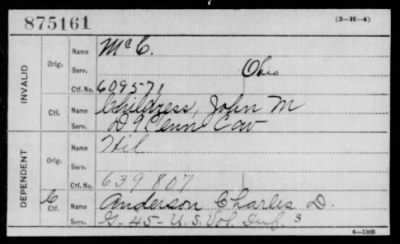 875161 (3-H-4)
INVALID
Orig. Name McC.
Serv. Ohio
Ctf. No. 609571
Ctf. Name Childress, John M
Serv. D 9 Tenn Cav
DEPENDENT
Orig. Name Wil
Serv.
Ctf. No. 639807
C Ctf. Name Anderson Charles D.
Serv. G-45-U.S. Vol. Inf. 3